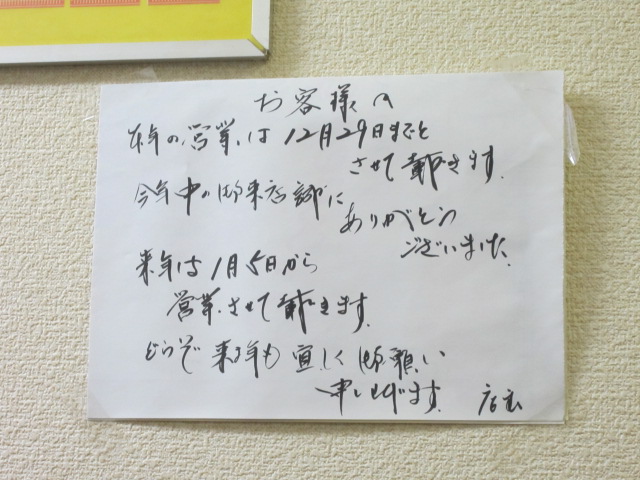 お客様へ
本年の営業は12月29日までと
させて戴きます。
今年中の御来店誠に
ありがとう
ございました
来年は1月5日から
営業させて戴きます。
どうぞ来年も宜しく御願い
申し上げます。 店主